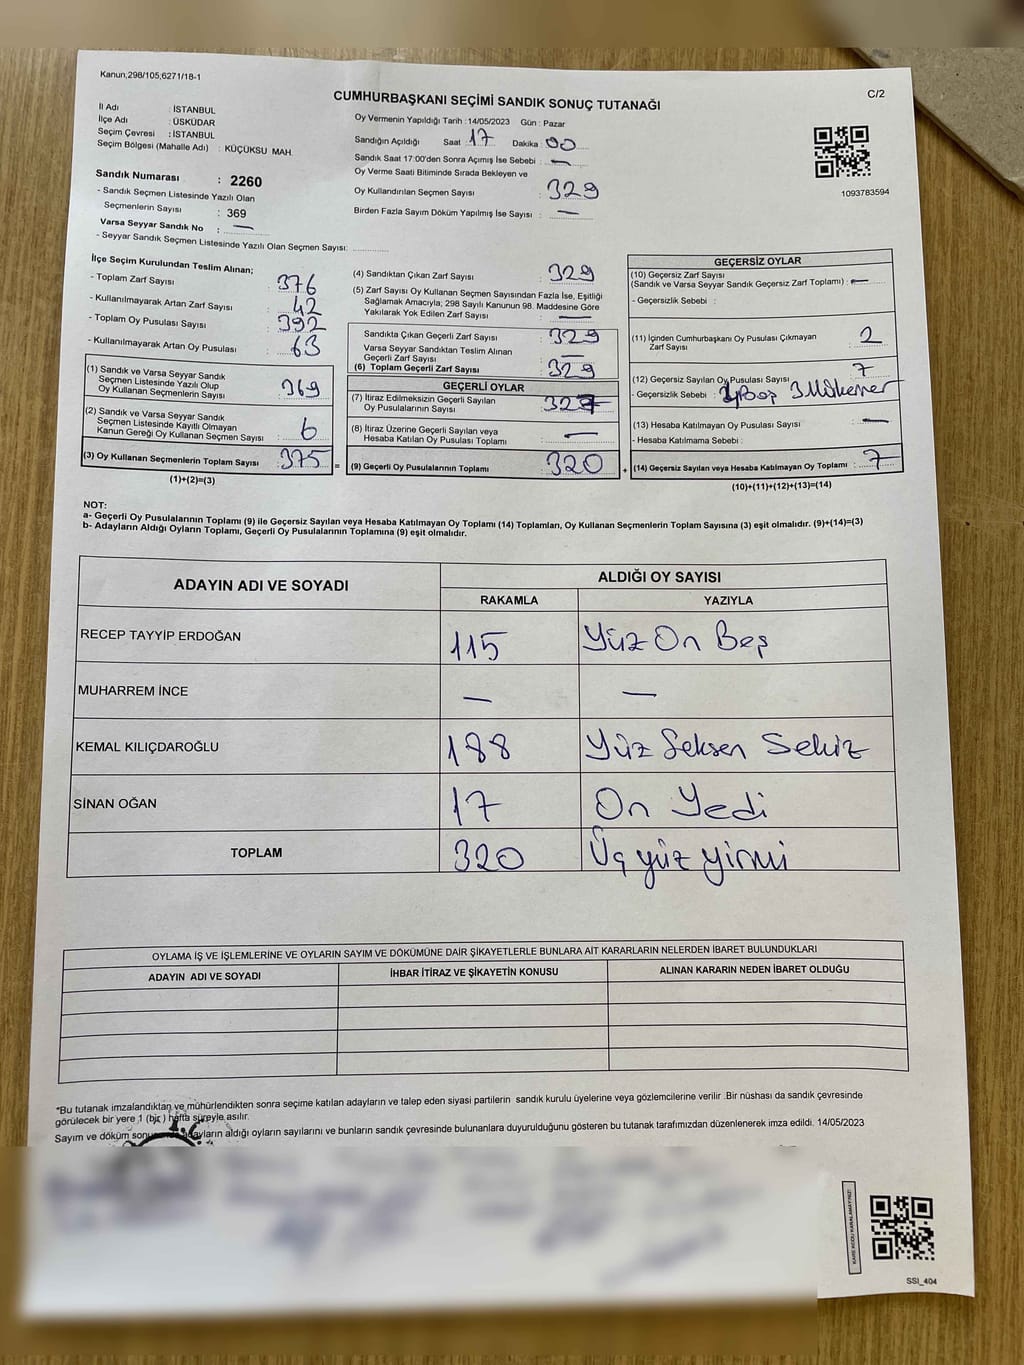 Kanun,298/105,6271/18-1
C/2
CUMHURBAŞKANI SEÇİMİ SANDIK SONUÇ TUTANAĞI
İl Adı : İSTANBUL
İlçe Adı : ÜSKÜDAR
Seçim Çevresi : İSTANBUL
Seçim Bölgesi (Mahalle Adı) : KÜÇÜKSU MAH.
Sandık Numarası : 2260
- Sandık Seçmen Listesinde Yazılı Olan
Seçmenlerin Sayısı : 369
Varsa Seyyar Sandık No : —
- Seyyar Sandık Seçmen Listesinde Yazılı Olan Seçmen Sayısı: ............
Oy Vermenin Yapıldığı Tarih : 14/05/2023 Gün : Pazar
Sandığın Açıldığı Saat 17 Dakika : 00
Sandık Saat 17:00'den Sonra Açımış İse Sebebi : —
Oy Verme Saati Bitiminde Sırada Bekleyen ve
Oy Kullandırılan Seçmen Sayısı : 329
Birden Fazla Sayım Döküm Yapılmış İse Sayısı : —
1093783594
İlçe Seçim Kurulundan Teslim Alınan;
- Toplam Zarf Sayısı : 376
- Kullanılmayarak Artan Zarf Sayısı : 42
- Toplam Oy Pusulası Sayısı : 392
- Kullanılmayarak Artan Oy Pusulası : 63
(1) Sandık ve Varsa Seyyar Sandık
Seçmen Listesinde Yazılı Olup
Oy Kullanan Seçmenlerin Sayısı : 369
(2) Sandık ve Varsa Seyyar Sandık
Seçmen Listesinde Kayıtlı Olmayan
Kanun Gereği Oy Kullanan Seçmen Sayısı : 6
(3) Oy Kullanan Seçmenlerin Toplam Sayısı : 375 =
(1)+(2)=(3)
(4) Sandıktan Çıkan Zarf Sayısı : 329
(5) Zarf Sayısı Oy Kullanan Seçmen Sayısından Fazla İse, Eşitliği
Sağlamak Amacıyla; 298 Sayılı Kanunun 98. Maddesine Göre
Yakılarak Yok Edilen Zarf Sayısı : —
Sandıkta Çıkan Geçerli Zarf Sayısı : 329
Varsa Seyyar Sandıktan Teslim Alınan
Geçerli Zarf Sayısı : —
(6) Toplam Geçerli Zarf Sayısı : 329
GEÇERLİ OYLAR
(7) İtiraz Edilmeksizin Geçerli Sayılan
Oy Pusulalarının Sayısı : 327
(8) İtiraz Üzerine Geçerli Sayılan veya
Hesaba Katılan Oy Pusulası Toplamı : —
(9) Geçerli Oy Pusulalarının Toplamı : 320 +
GEÇERSİZ OYLAR
(10) Geçersiz Zarf Sayısı
(Sandık ve Varsa Seyyar Sandık Geçersiz Zarf Toplamı) : —
- Geçersizlik Sebebi :
(11) İçinden Cumhurbaşkanı Oy Pusulası Çıkmayan
Zarf Sayısı : 2
(12) Geçersiz Sayılan Oy Pusulası Sayısı : 7
- Geçersizlik Sebebi : Boş 3 Mükerrer
(13) Hesaba Katılmayan Oy Pusulası Sayısı : —
- Hesaba Katılmama Sebebi :
(14) Geçersiz Sayılan veya Hesaba Katılmayan Oy Toplamı : 7
(10)+(11)+(12)+(13)=(14)
NOT:
a- Geçerli Oy Pusulalarının Toplamı (9) ile Geçersiz Sayılan veya Hesaba Katılmayan Oy Toplamı (14) Toplamları, Oy Kullanan Seçmenlerin Toplam Sayısına (3) eşit olmalıdır. (9)+(14)=(3)
b- Adayların Aldığı Oyların Toplamı, Geçerli Oy Pusulalarının Toplamına (9) eşit olmalıdır.
ADAYIN ADI VE SOYADI ALDIĞI OY SAYISI
RAKAMLA YAZIYLA
RECEP TAYYİP ERDOĞAN 115 Yüz On Beş
MUHARREM İNCE — —
KEMAL KILIÇDAROĞLU 188 Yüz Seksen Sekiz
SİNAN OĞAN 17 On Yedi
TOPLAM 320 Üç yüz yirmi
OYLAMA İŞ VE İŞLEMLERİNE VE OYLARIN SAYIM VE DÖKÜMÜNE DAİR ŞİKAYETLERLE BUNLARA AİT KARARLARIN NELERDEN İBARET BULUNDUKLARI
ADAYIN ADI VE SOYADI İHBAR İTİRAZ VE ŞİKAYETİN KONUSU ALINAN KARARIN NEDEN İBARET OLDUĞU
*Bu tutanak imzalandıktan ve mühürlendikten sonra seçime katılan adayların ve talep eden siyasi partilerin sandık kurulu üyelerine veya gözlemcilerine verilir .Bir nüshası da sandık çevresinde
görülecek bir yere 1 (bir) hafta süreyle asılır.
Sayım ve döküm sonucunda adayların aldığı oyların sayılarını ve bunların sandık çevresinde bulunanlara duyurulduğunu gösteren bu tutanak tarafımızdan düzenlenerek imza edildi. 14/05/2023
KARE KODU KARALAMAYINIZ!
SSI_404